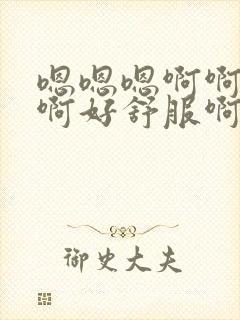 嗯嗯嗯啊啊
啊好舒服啊
御史大夫